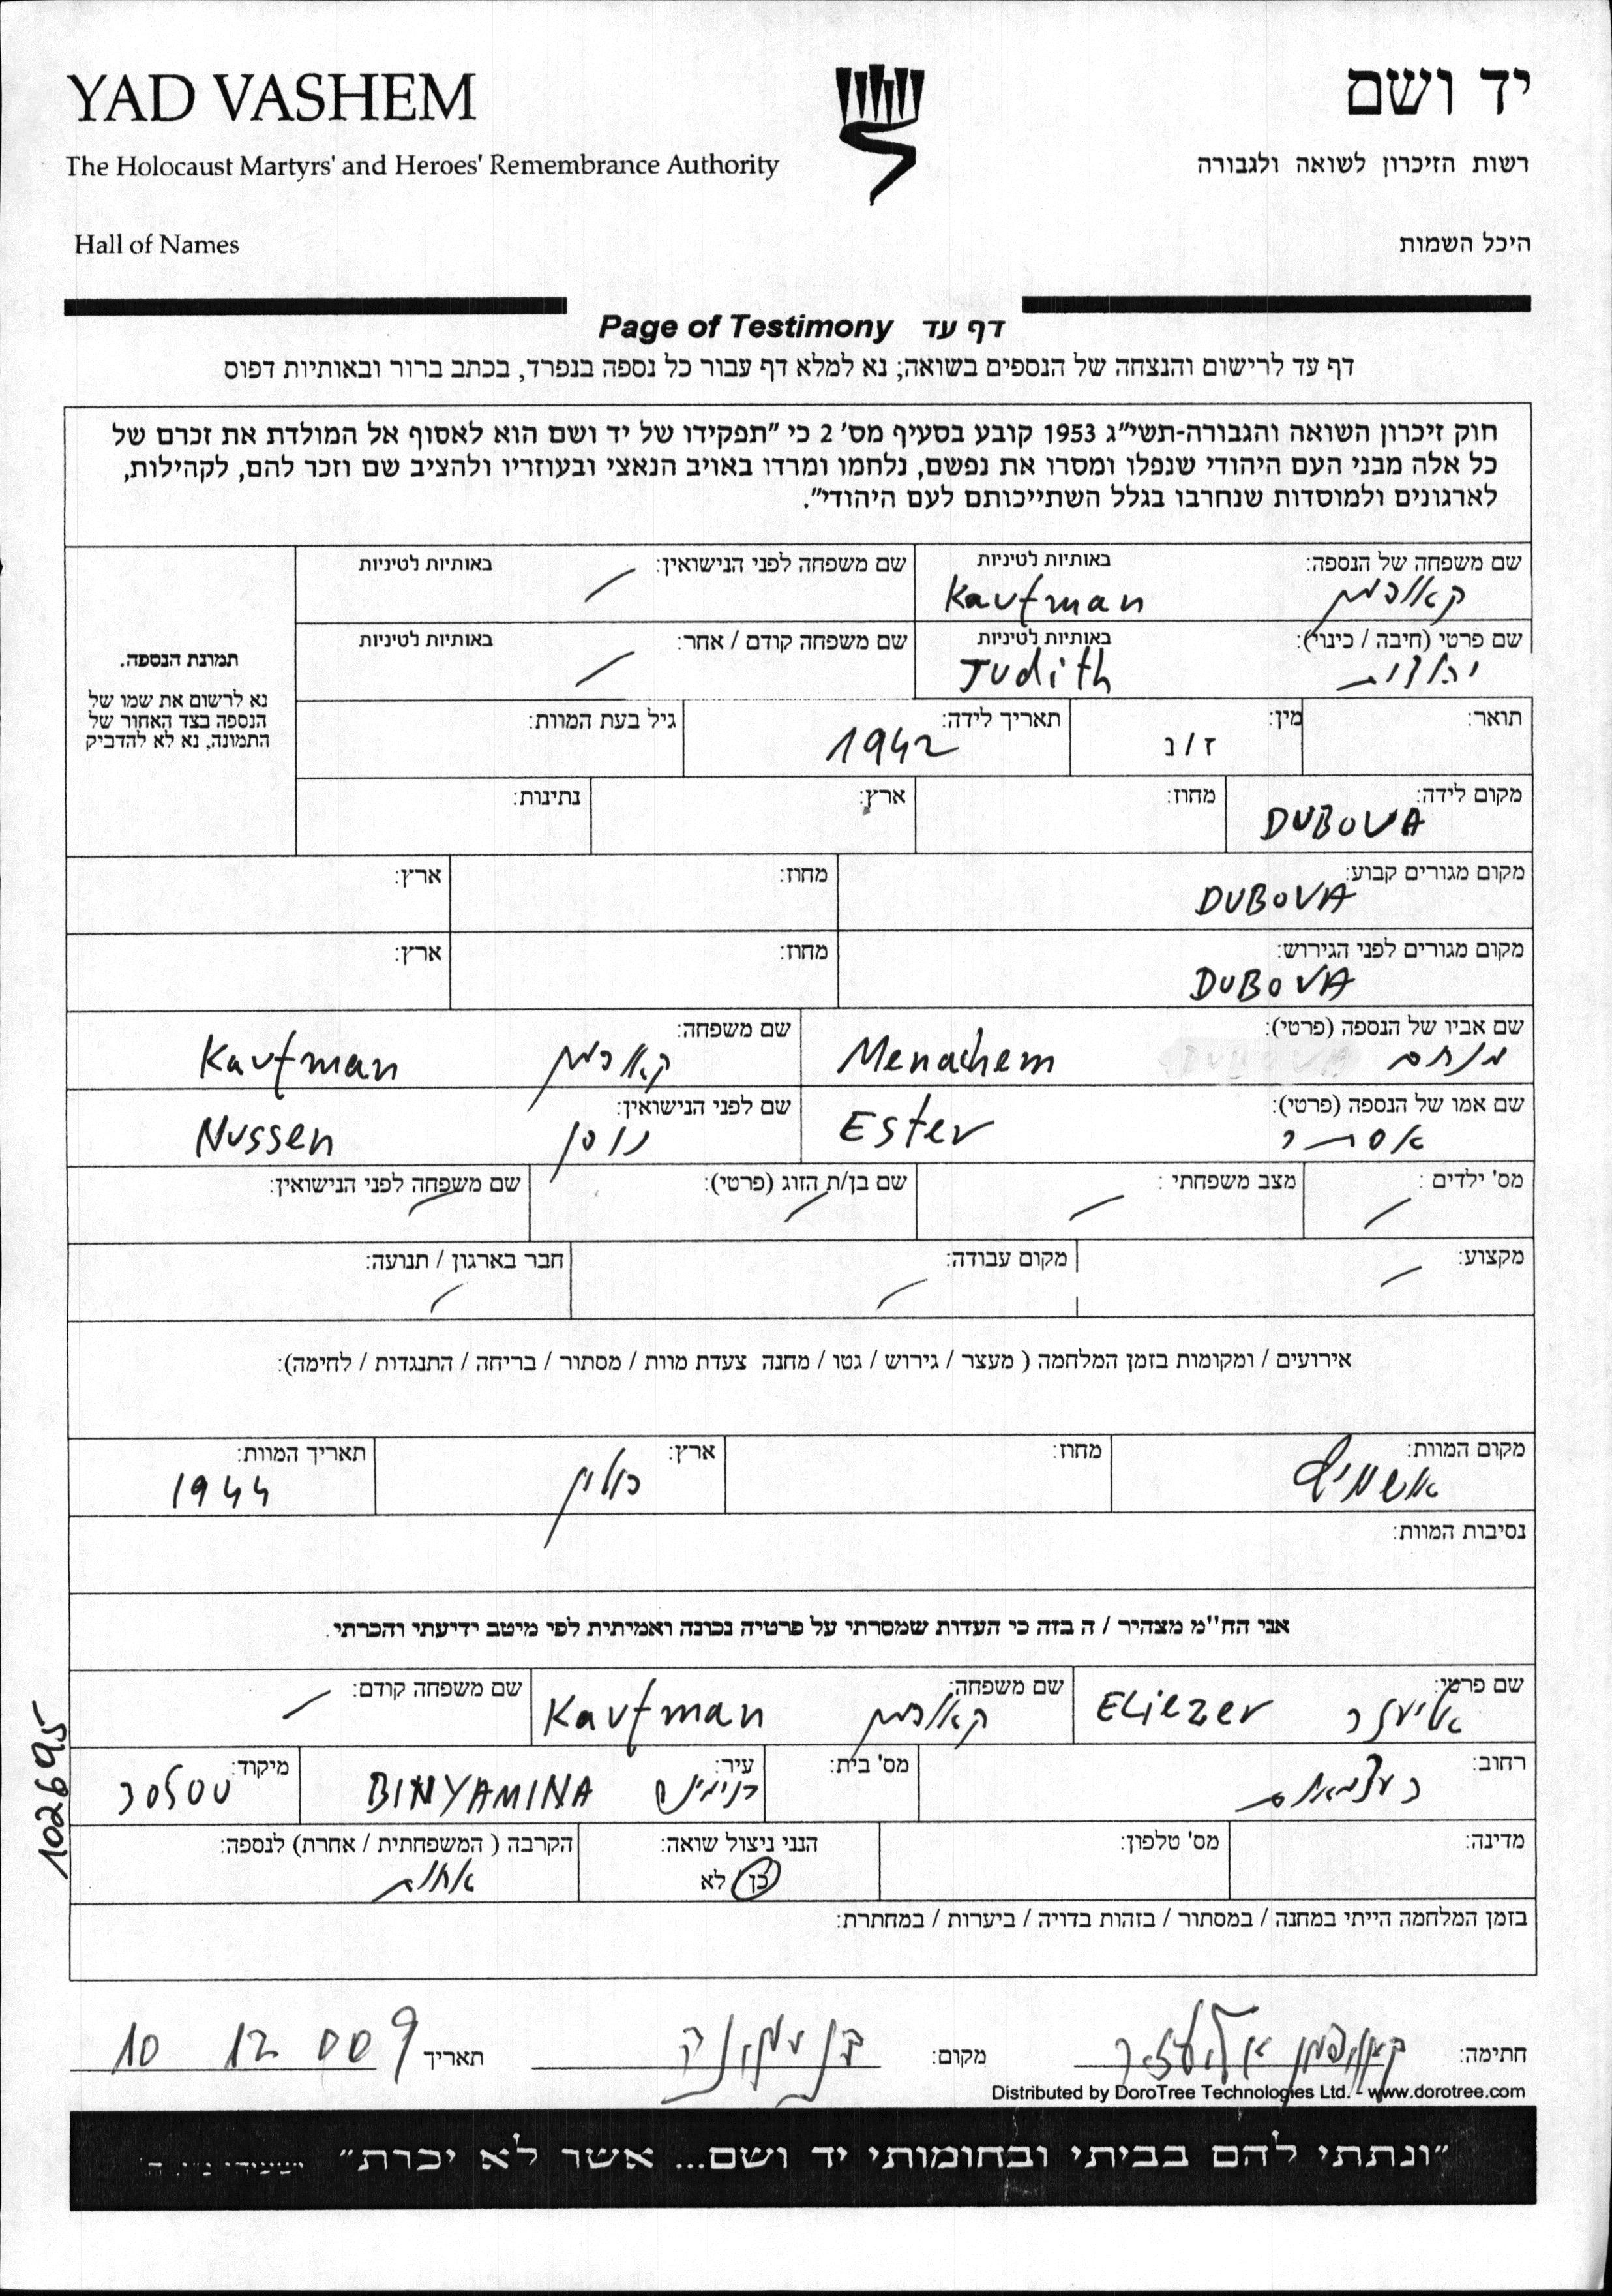 YAD VASHEM
יד ושם
The Holocaust Martyrs' and Heroes' Remembrance Authority
רשות הזיכרון לשואה ולגבורה
Hall of Names
היכל השמות
Page of Testimony דף עד
דף עד לרישום והנצחה של הנספים בשואה; נא למלא דף עבור כל נספה בנפרד, בכתב ברור ובאותיות דפוס
חוק זיכרון השואה והגבורה-תשי״ג 1953 קובע בסעיף מס׳ 2 כי ״תפקידו של יד ושם הוא לאסוף אל המולדת את זכרם של
כל אלה מבני העם היהודי שנפלו ומסרו את נפשם, נלחמו ומרדו באויב הנאצי ובעוזריו ולהציב שם וזכר להם, לקהילות,
לארגונים ולמוסדות שנחרבו בגלל השתייכותם לעם היהודי״.
שם משפחה של הנספה: באותיות לטיניות
קאופמן Kaufman
שם משפחה לפני הנישואין: באותיות לטיניות
שם פרטי (חיבה / כינוי): באותיות לטיניות
יהודית Judith
שם משפחה קודם / אחר: באותיות לטיניות
תמונת הנספה.
נא לרשום את שמו של
הנספה בצד האחור של
התמונה, נא לא להדביק
תואר:
מין: ז / נ
תאריך לידה: 1942
גיל בעת המוות:
מקום לידה: DUBOVA
מחוז:
ארץ:
נתינות:
מקום מגורים קבוע: DUBOVA
מחוז:
ארץ:
מקום מגורים לפני הגירוש: DUBOVA
מחוז:
ארץ:
שם אביו של הנספה (פרטי): מנחם Menachem
שם משפחה: קאופמן Kaufman
שם אמו של הנספה (פרטי): אסתר Ester
שם לפני הנישואין: נוסן Nussen
מס' ילדים :
מצב משפחתי :
שם בן/ת הזוג (פרטי):
שם משפחה לפני הנישואין:
מקצוע:
מקום עבודה:
חבר בארגון / תנועה:
אירועים / ומקומות בזמן המלחמה ( מעצר / גירוש / גטו / מחנה צעדת מוות / מסתור / בריחה / התנגדות / לחימה):
מקום המוות: אושוויץ
מחוז:
ארץ: פולין
תאריך המוות: 1944
נסיבות המוות:
אני הח"מ מצהיר / ה בזה כי העדות שמסרתי על פרטיה נכונה ואמיתית לפי מיטב ידיעתי והכרתי.
שם פרטי: אליעזר Eliezer
שם משפחה: קאופמן Kaufman
שם משפחה קודם:
רחוב: העצמאות
מס' בית:
עיר: בנימינה BINYAMINA
מיקוד: 30500
מדינה:
מס' טלפון:
הנני ניצול שואה:
כן לא
הקרבה ( המשפחתית / אחרת) לנספה:
אחות
בזמן המלחמה הייתי במחנה / במסתור / בזהות בדויה / ביערות / במחתרת:
102695
חתימה: קאופמן אליעזר
מקום: בנימינה
תאריך 10 12 009
Distributed by DoroTree Technologies Ltd. - www.dorotree.com
״ונתתי להם בביתי ובחומותי יד ושם... אשר לא יכרת״